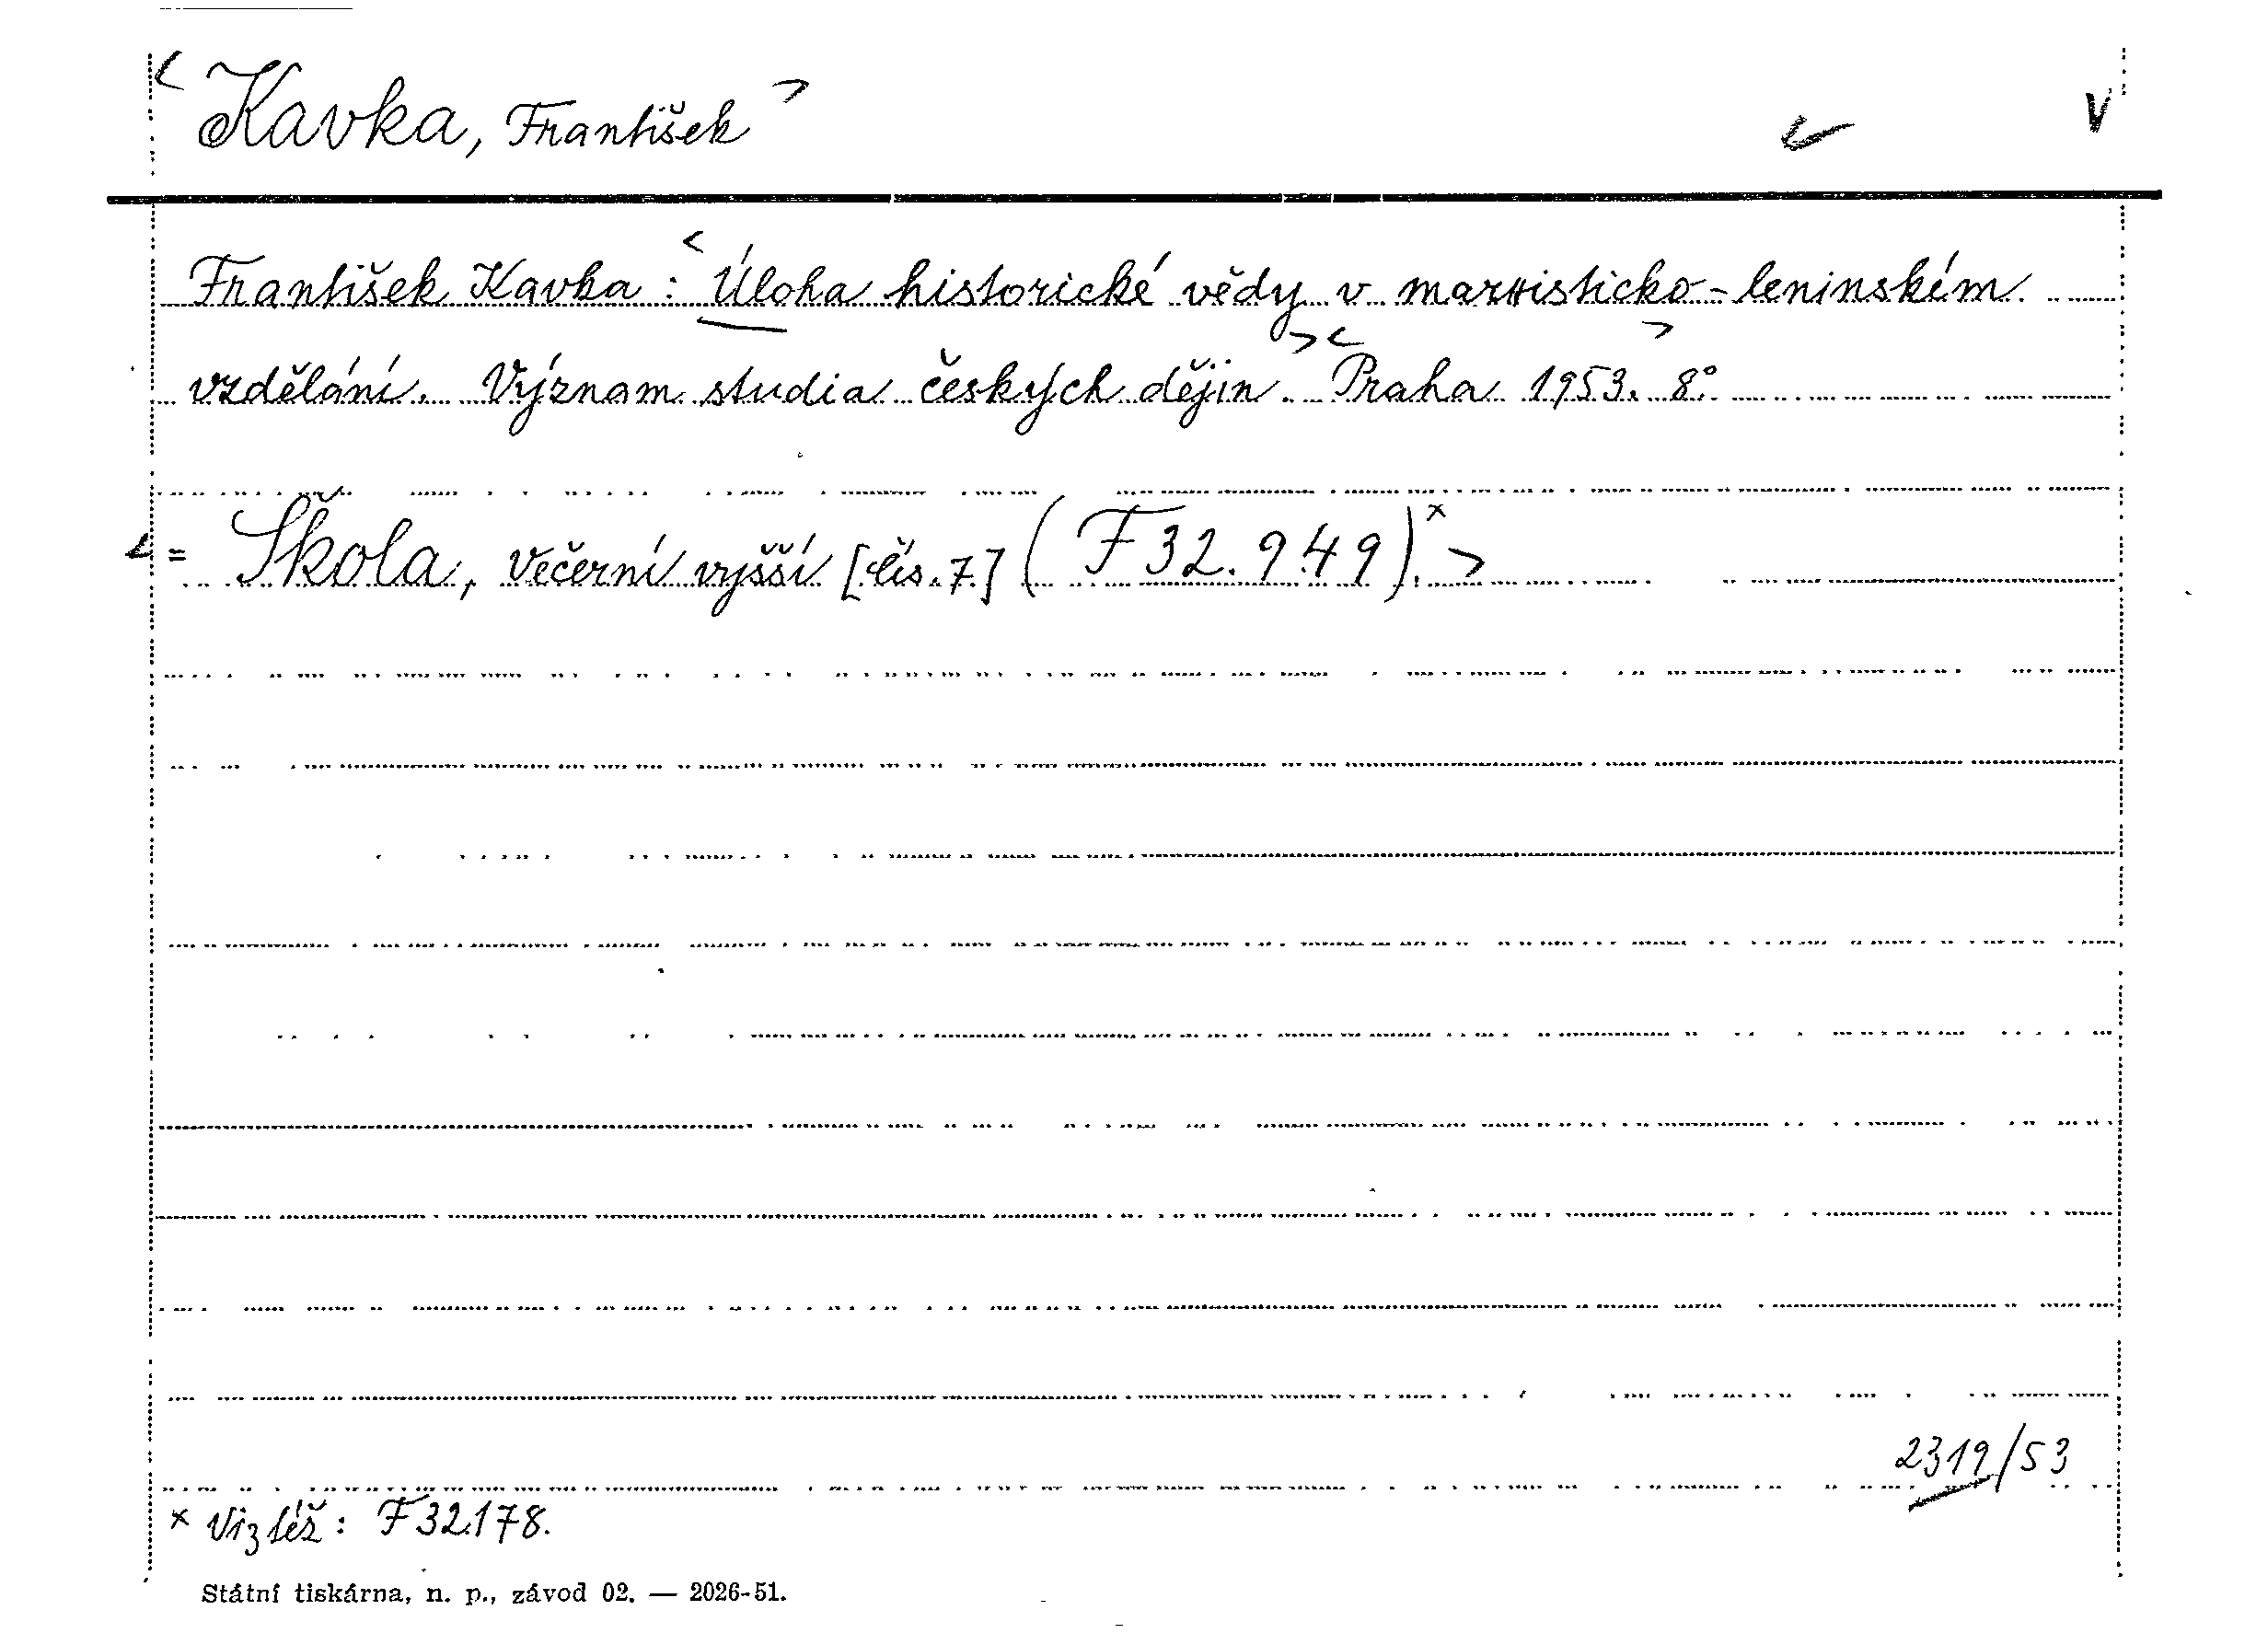 < Kavka, František > V
František Kavka : < Úloha historické vědy v marxisticko-leninském
vzdělání. Význam studia českých dějin. > < Praha 1953. > 8°.
< = Škola, večerní vyšší [čís. 7] (F 32.949).× >
2319/53
× Viz též: F 32.178.
Státní tiskárna, n. p., závod 02. — 2026-51.